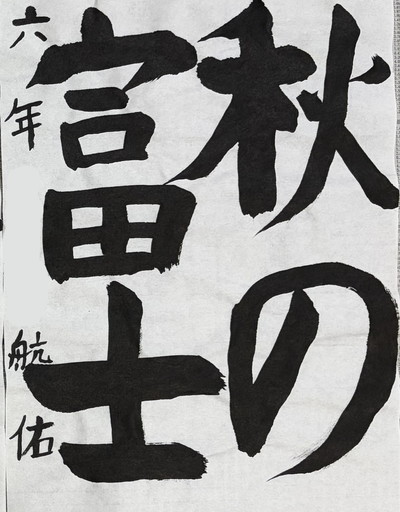 秋の
富士
六年 航佑